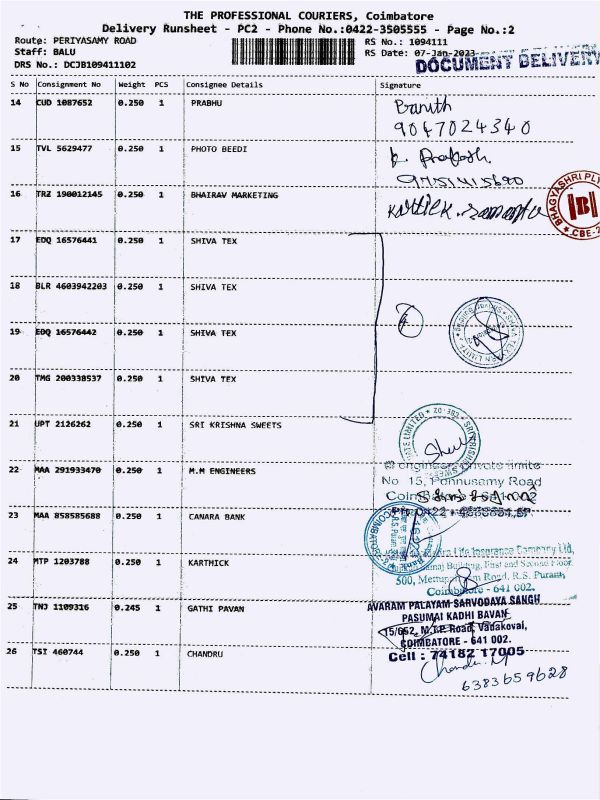 THE PROFESSIONAL COURIERS, Coimbatore
Delivery Runsheet - PC2 - Phone No.:0422-3505555 - Page No.:2
Route: PERIYASAMY ROAD
Staff: BALU
DRS No.: DCJB109411102
RS No.: 1094111
RS Date: 07-Jan-2023
DOCUMENT DELIVERY
S No Consignment No Weight PCS Consignee Details Signature
14 CUD 1087652 0.250 1 PRABHU
9047024340
15 TVL 5629477 0.250 1 PHOTO BEEDI
16 TRZ 190012145 0.250 1 BHAIRAV MARKETING
BHAGYASHRI
B
CBE-2
17 EDQ 16576441 0.250 1 SHIVA TEX
18 BLR 4603942203 0.250 1 SHIVA TEX
19 EDQ 16576442 0.250 1 SHIVA TEX
20 TMG 200338537 0.250 1 SHIVA TEX
21 UPT 2126262 0.250 1 SRI KRISHNA SWEETS
22 MAA 291933470 0.250 1 M.M ENGINEERS
No 15, Ponnusamy Road
23 MAA 858585688 0.250 1 CANARA BANK
Life Insurance Company Ltd,
24 MTP 1203788 0.250 1 KARTHICK
Building, First and Second Floor
500, Road, R.S. Puram,
Coimbatore - 641 002.
25 TNJ 1109316 0.245 1 GATHI PAVAN
AVARAM PALAYAM SARVODAYA SANGH
PASUMAI KADHI BAVAN
15/652, M.T.P. Road, Vadakovai,
COIMBATORE - 641 002.
Cell : 74182 17005
26 TSI 460744 0.250 1 CHANDRU
6383659628